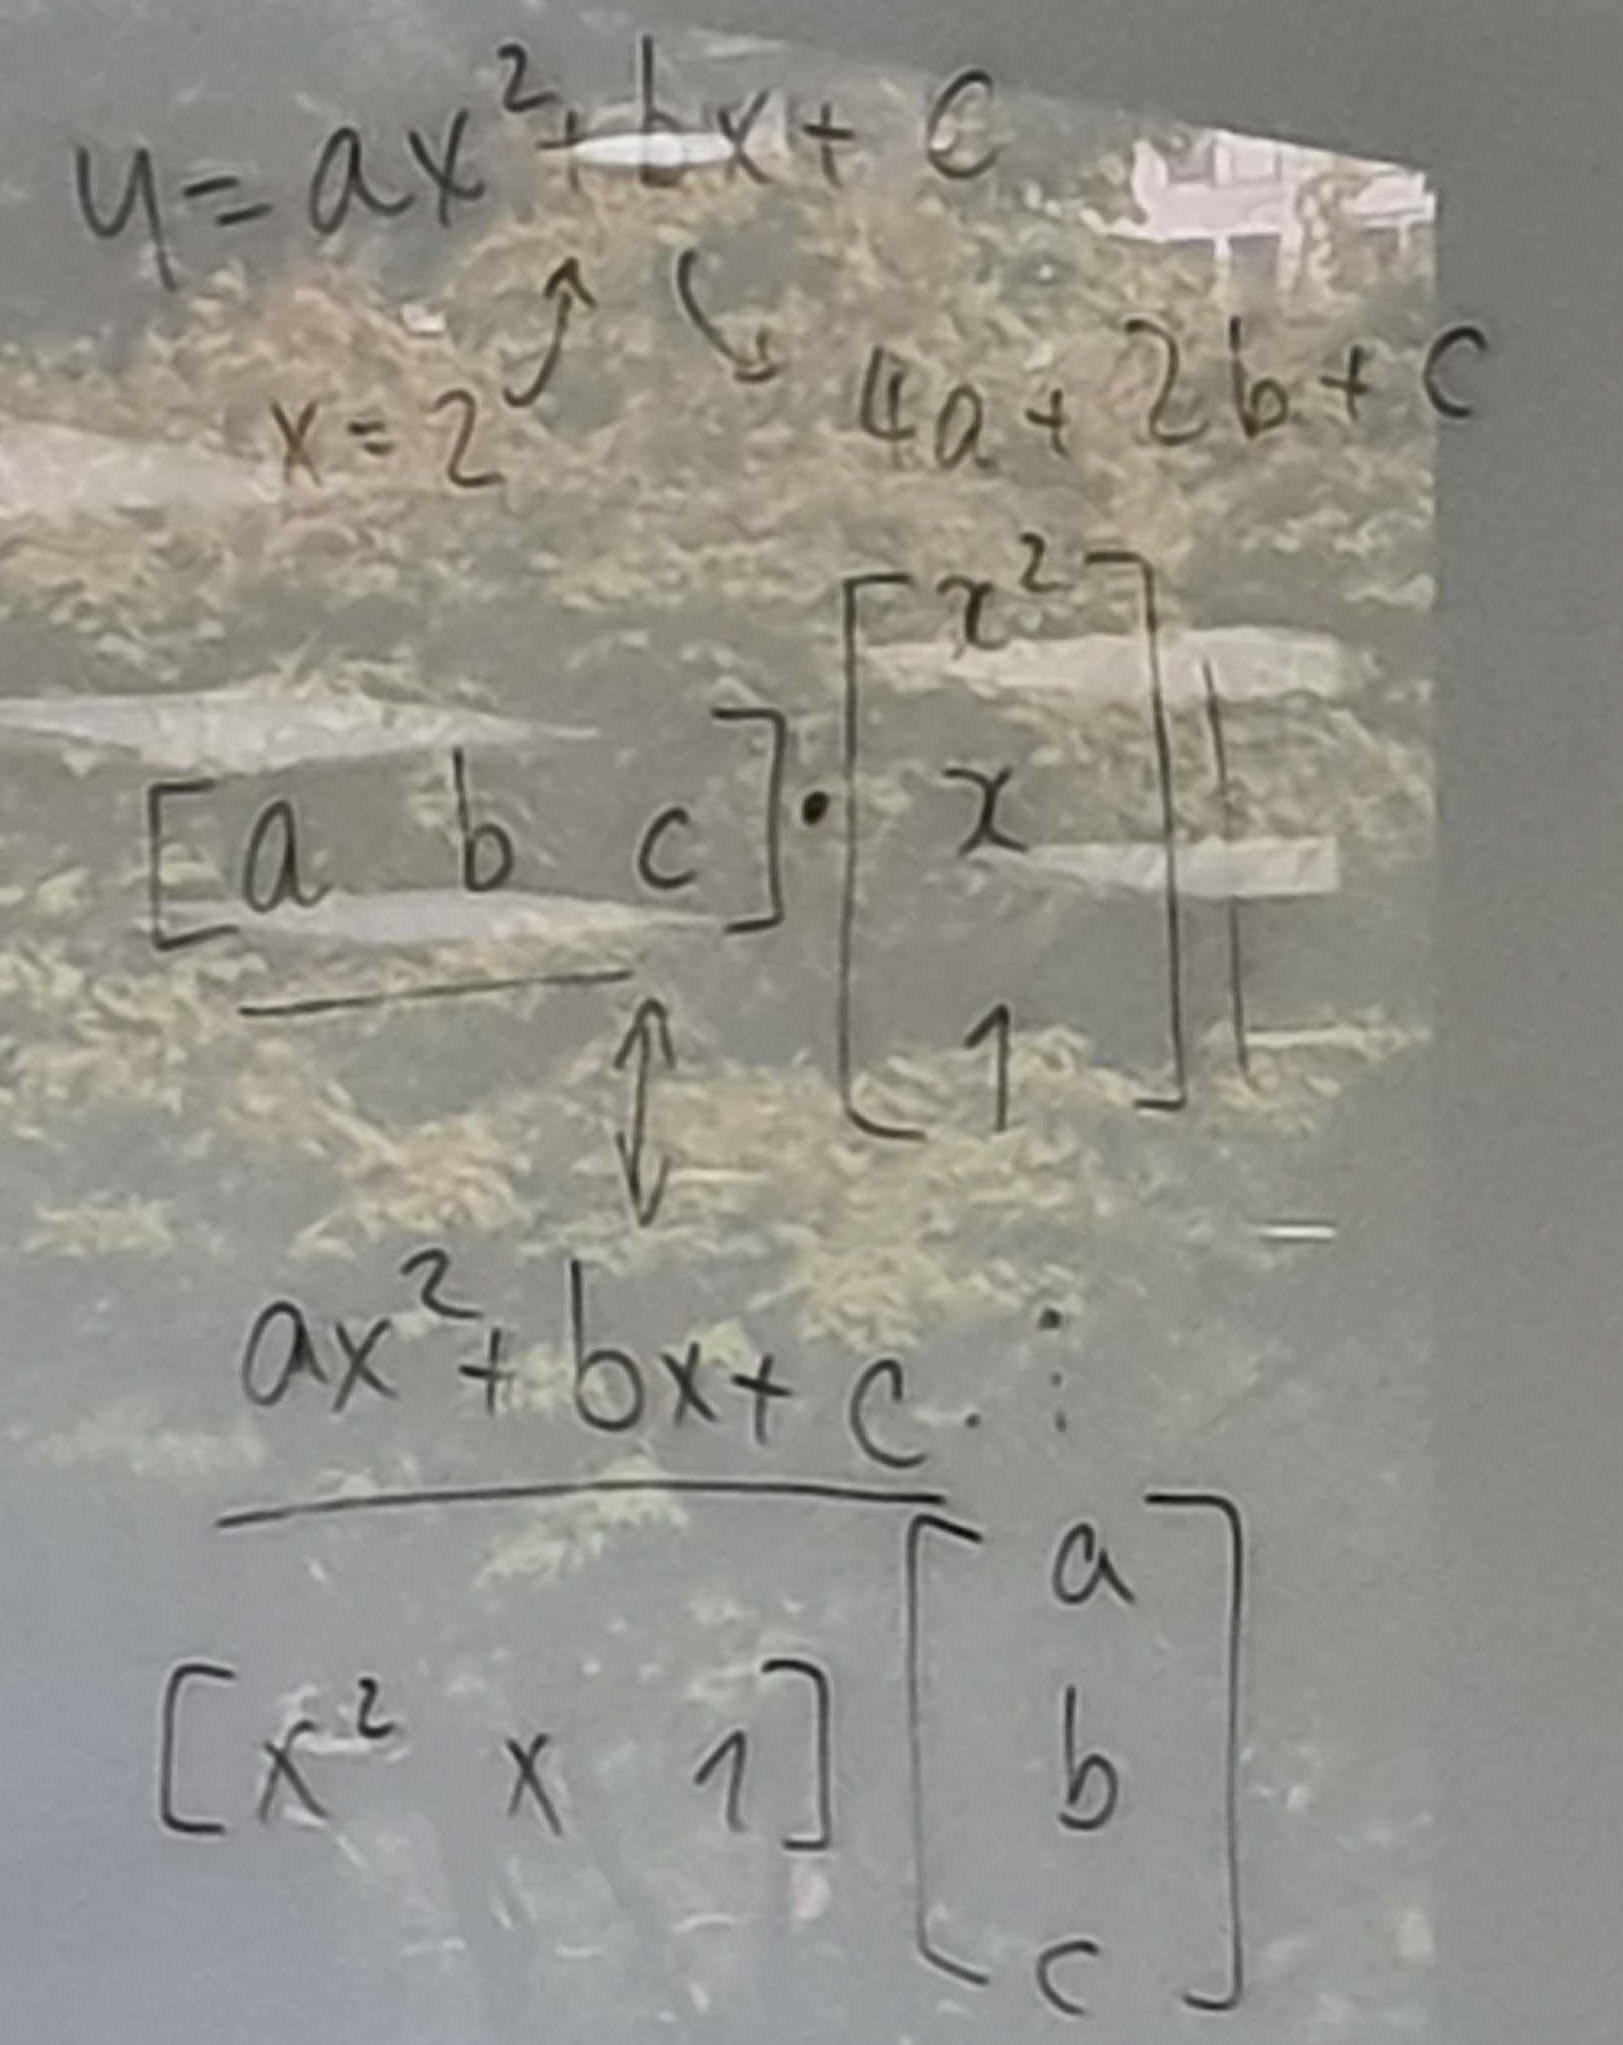 y = ax² + bx + c
x = 2 4a + 2b + c
[a b c] · [x² x 1]
ax² + bx + c.
[x² x 1] [a b c]